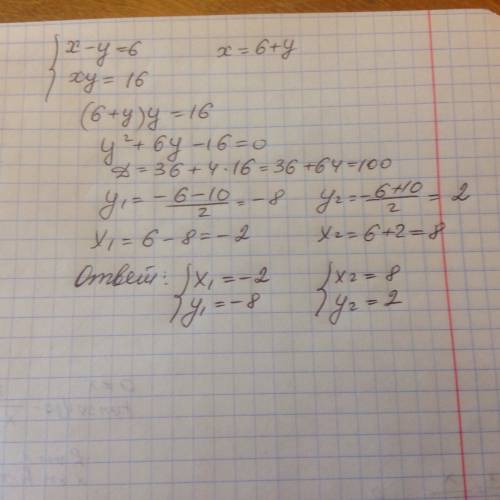 { x-y=6 x=6+y
xy=16
(6+y)y=16
y²+6y-16=0
D=36+4·16=36+64=100
y₁=(-6-10)/2=-8 y₂=(-6+10)/2=2
x₁=6-8=-2 x₂=6+2=8
Ответ: { x₁=-2 { x₂=8
y₁=-8 y₂=2